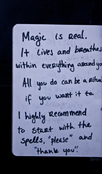 Magic is real.
It lives and breathes
within everything around you
All you do can be a ritual
if you want it to
I highly recommend
to start with the
spells, "please" and
"thank you".